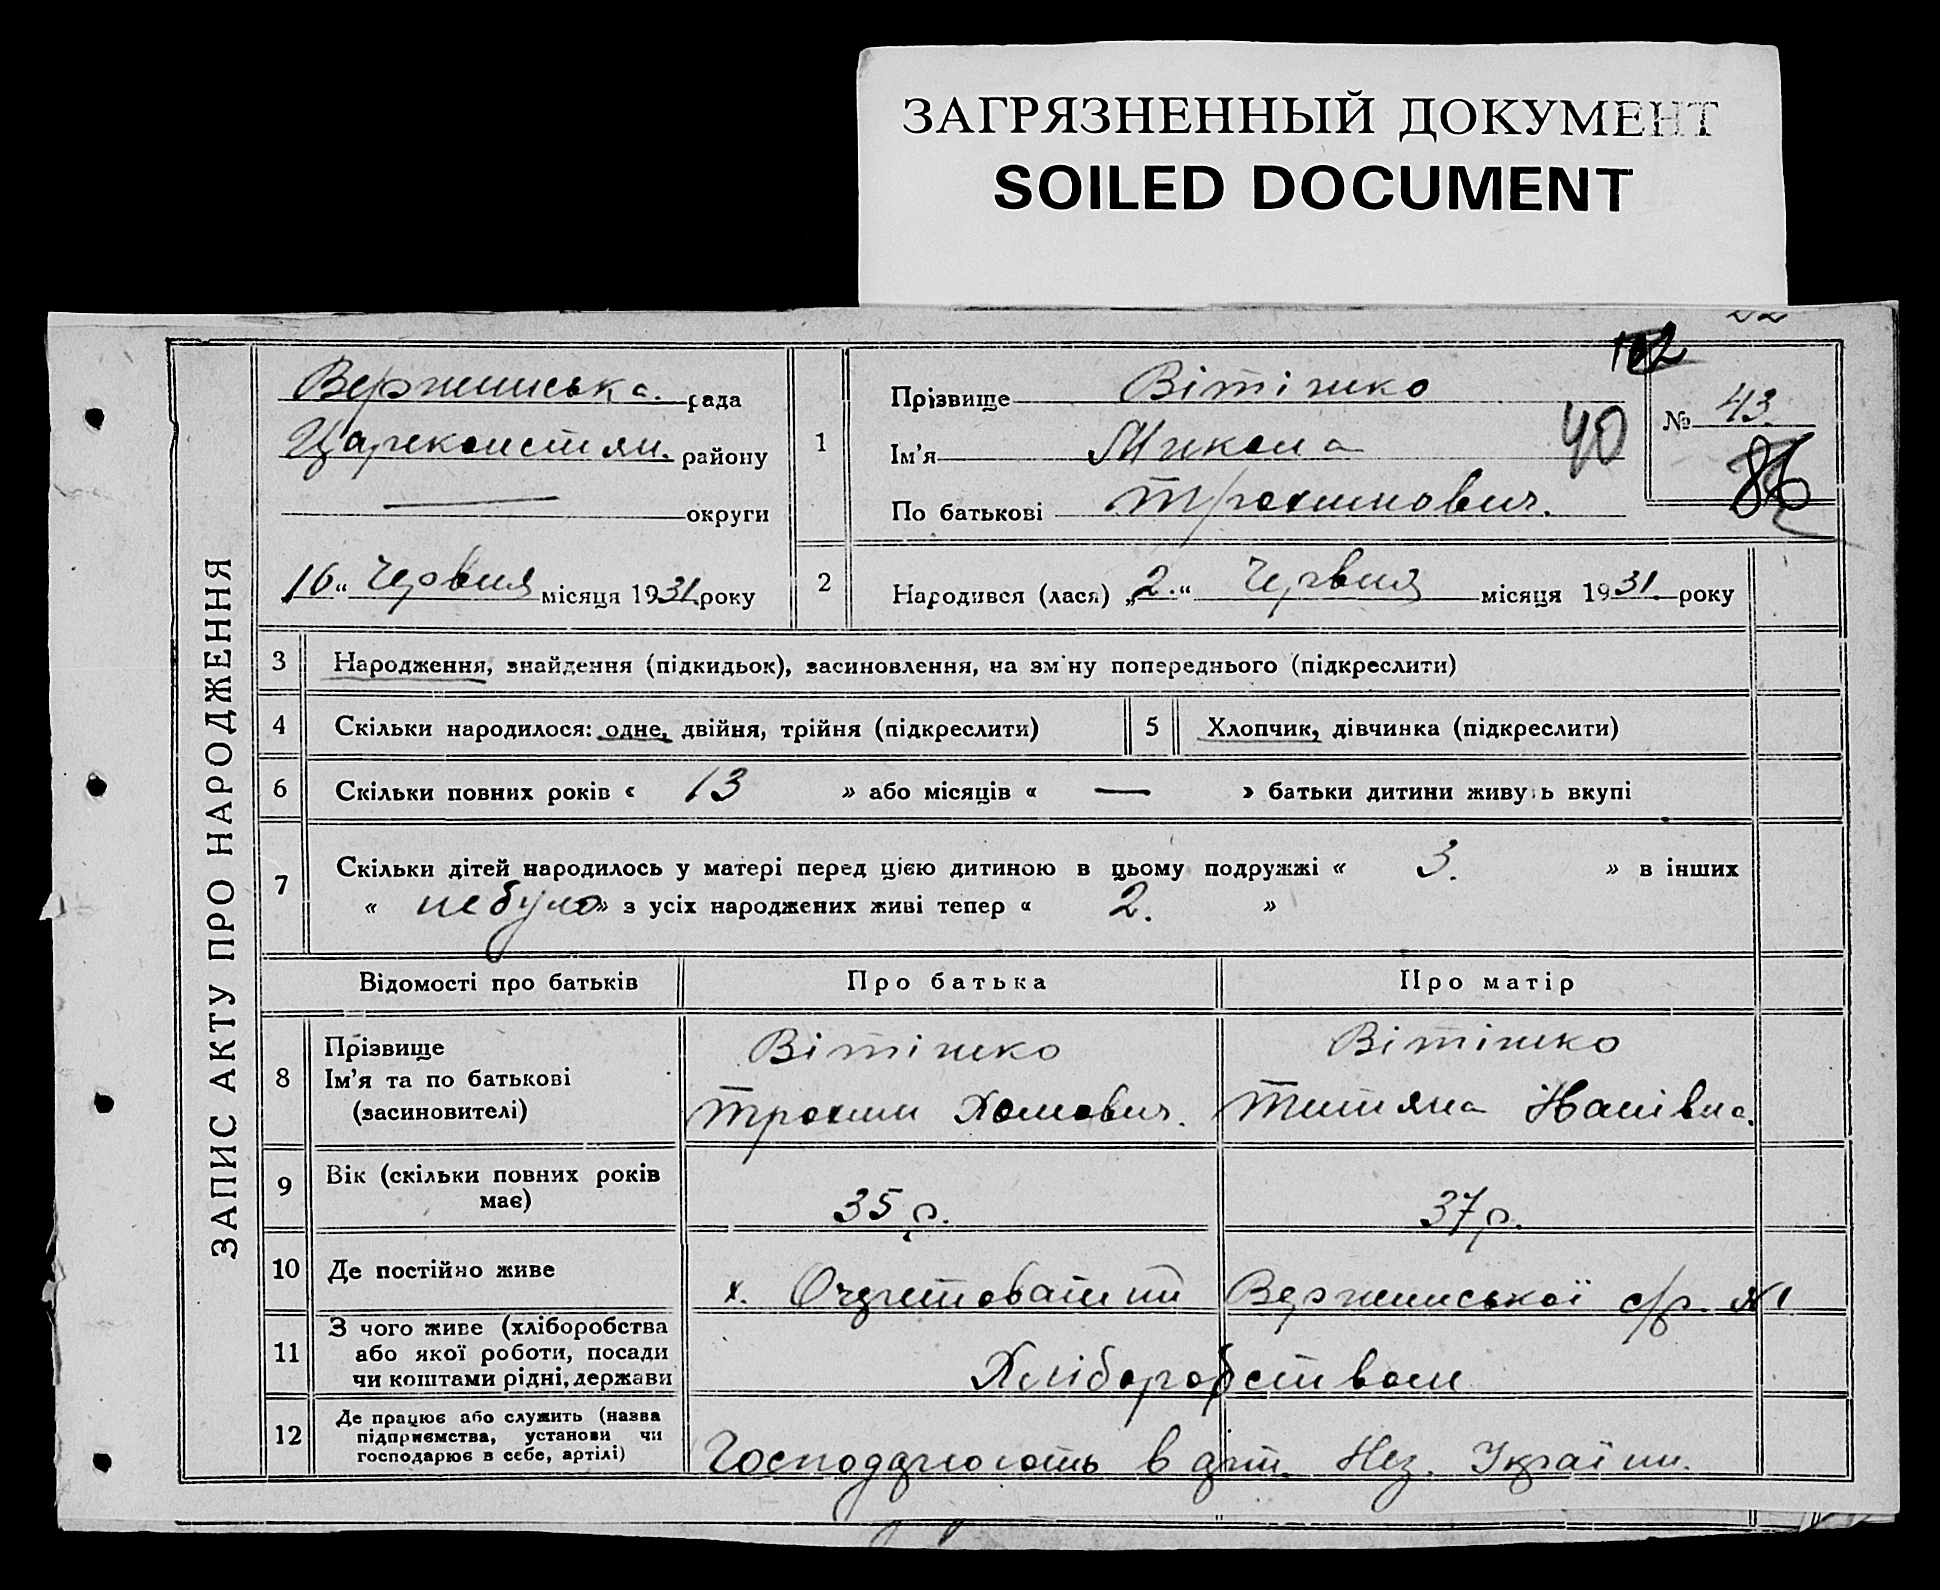 ЗАГРЯЗНЕННЫЙ ДОКУМЕНТ
SOILED DOCUMENT
ЗАПИС АКТУ ПРО НАРОДЖЕННЯ
рада
району
округи
16 “ Червня місяця 1931 року
1
Прізвище Вітінко
Ім’я Микола
По батькові Трохимович.
102
№ 43.
40
86
2
Народився (лася) „ 2. “ Червня місяця 1931. року
3 Народження, знайдення (підкидьок), засиновлення, на зміну попереднього (підкреслити)
4 Скільки народилося: одне, двійня, трійня (підкреслити)
5 Хлопчик, дівчинка (підкреслити)
6 Скільки повних років « 13 » або місяців « — » батьки дитини живуть вкупі
7 Скільки дітей народилось у матері перед цією дитиною в цьому подружжі « 3. » в інших
« не було » з усіх народжених живі тепер « 2. »
Відомості про батьків Про батька Про матір
8
Прізвище
Ім’я та по батькові
(засиновителі)
Вітінко
Трохим Хомович.
Вітінко
Титяна
9 Вік (скільки повних років
має)
35 р.
37 р.
10 Де постійно живе х. с/р.
11 З чого живе (хліборобства
або якої роботи, посади
чи коштами рідні, держави
Хліборобством
12 Де працює або служить (назва
підприємства, установи чи
господарює в себе, артілі)
Господарюють в арт. Нез. України.